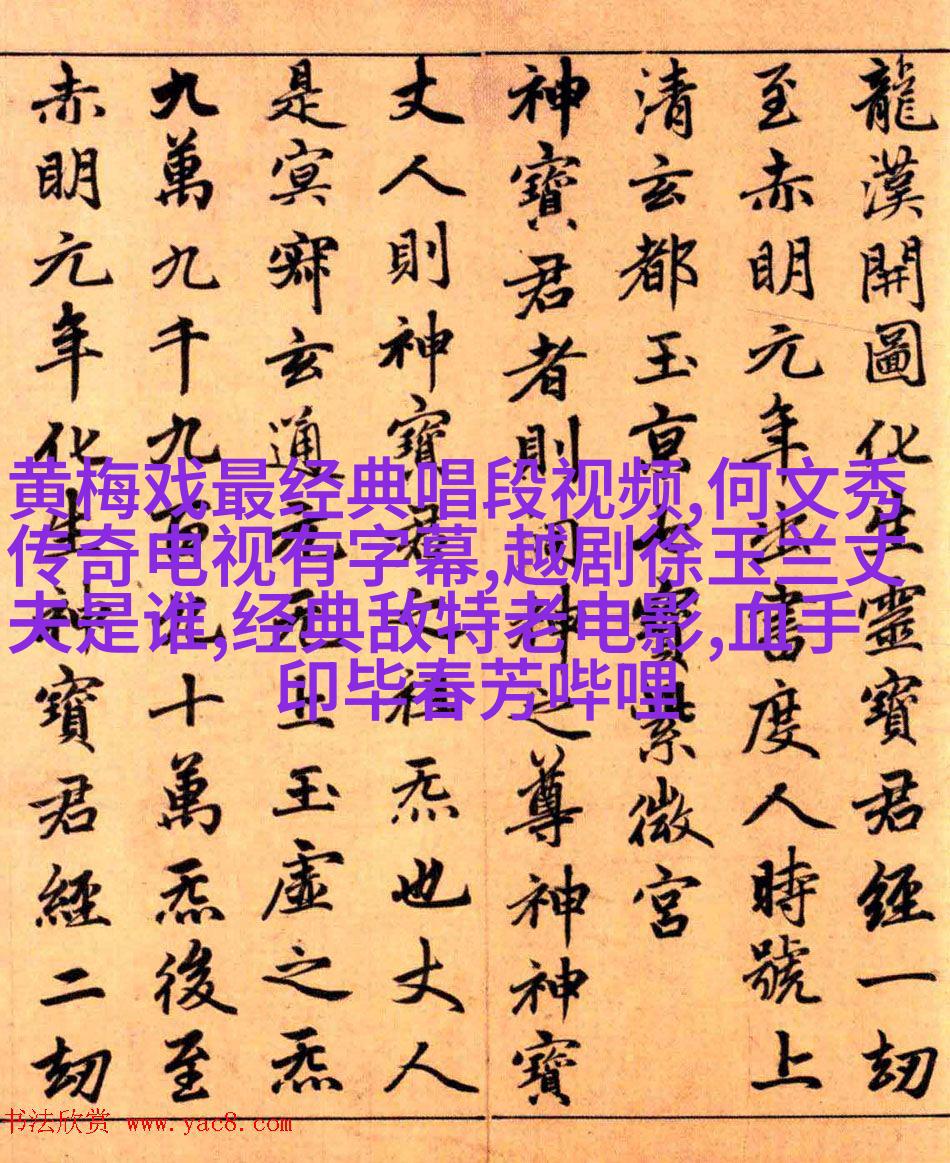 龍漢開圖化生靈寶君經一劫
至赤明元年出書度人時號上
清玄都玉京七寶紫微宮
神寶君者則洞神之尊神神寶
丈人則神寶君之祖炁也丈人
是冥寂玄通元无上玉虛之炁
九萬九千九百九十萬炁後至
赤明元年化生神寶君經二劫
黄梅戏最经典唱段视频,何文秀
传奇电视有字幕,越剧徐玉兰丈
夫是谁,经典敌特老电影,血手
印毕春芳哔哩
书法欣赏 www.yac8.com